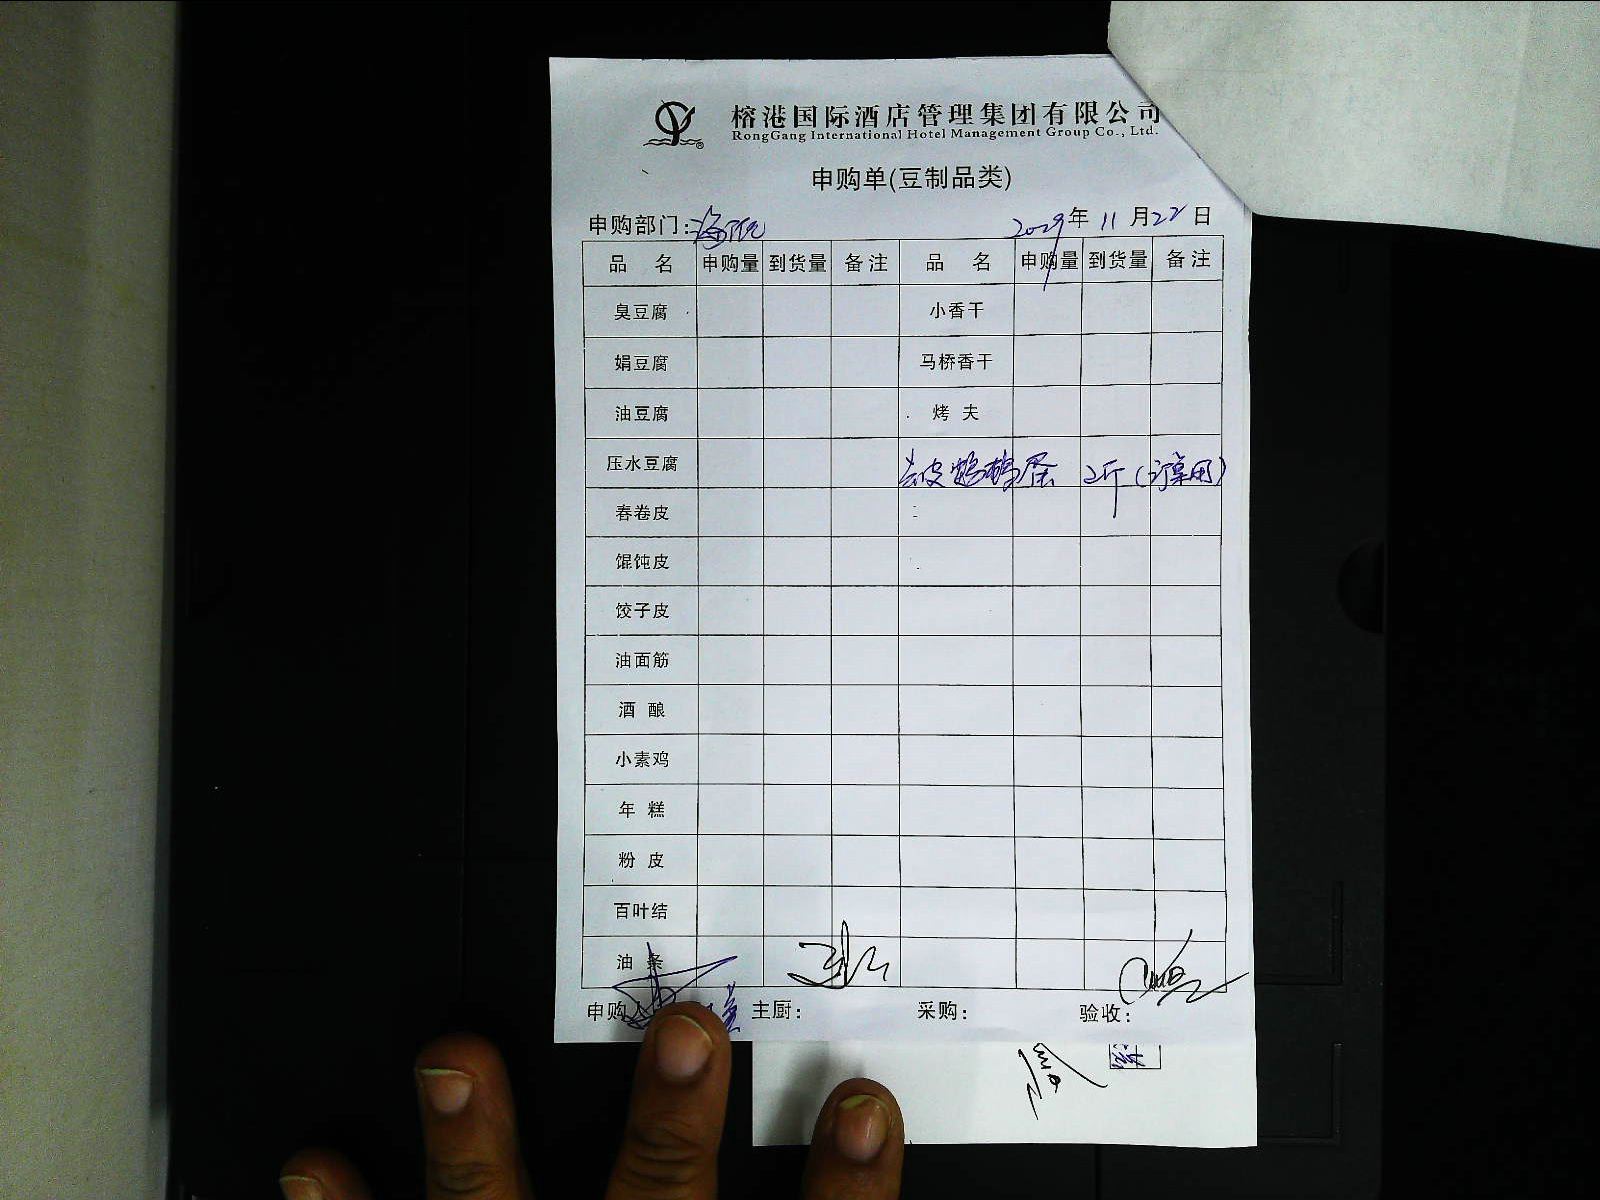 榕港国际酒店管理集团有限公司
RongGang International Hotel Management Group Co., Ltd.
申购单(豆制品类)
申购部门: 年 11 月 22 日
品 名 申购量 到货量 备注 品 名 申购量 到货量 备注
臭豆腐 小香干
娟豆腐 马桥香干
油豆腐 烤 夫
压水豆腐 去皮鹌鹑蛋 2斤(订桌用)
春卷皮
馄饨皮
饺子皮
油面筋
酒 酿
小素鸡
年 糕
粉 皮
百叶结
油 条
申购人 主厨: 采购: 验收: